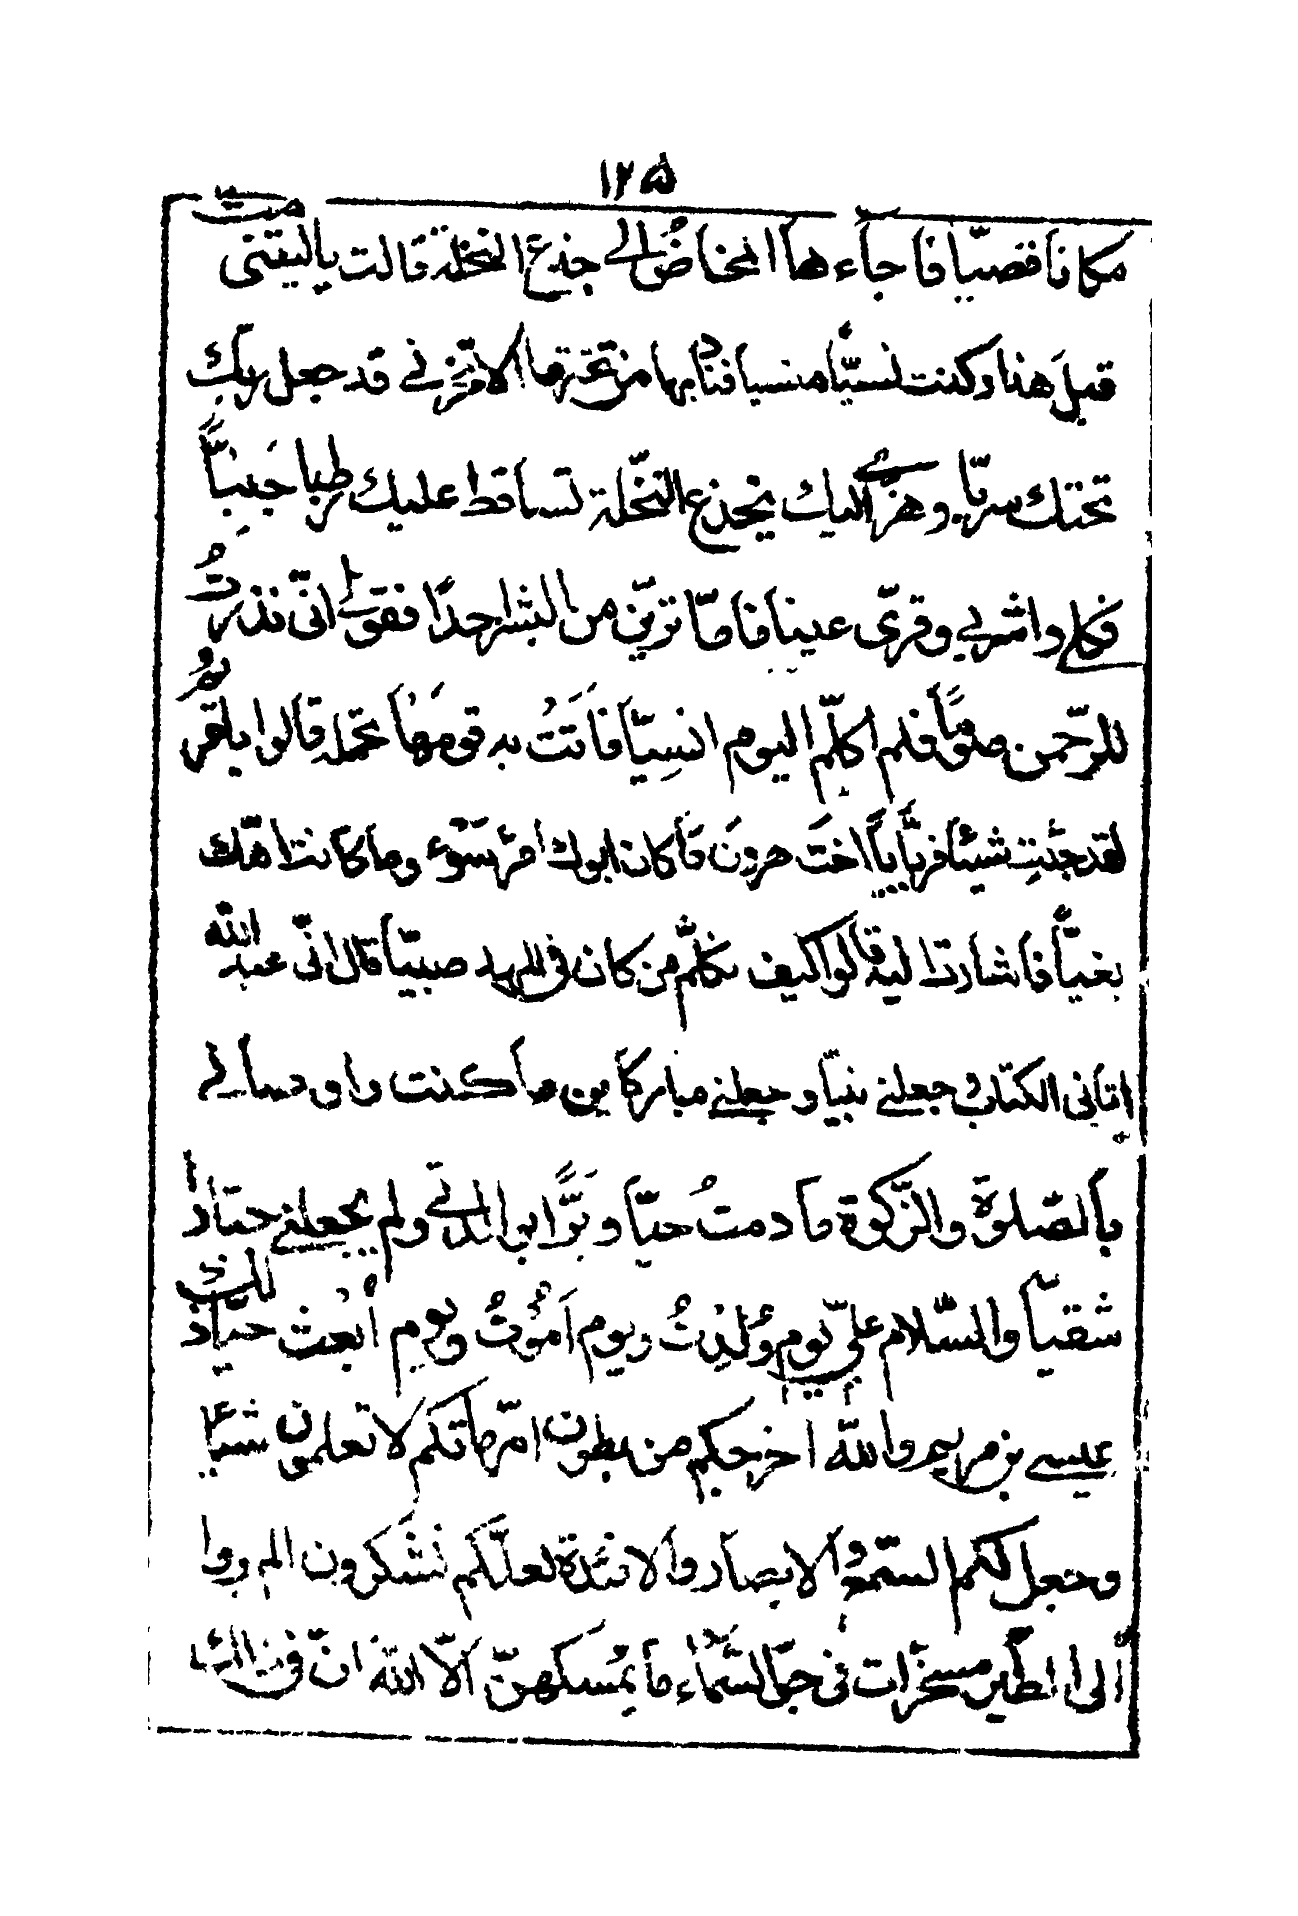 ١٢۵
مكانا قصيّا فاجآءها المخاضُ الى جذع النخلة قالت ياليتنى متّ
قبل هذا وكنت نسيّا منسيا فناديها من تحتها الا تحزنى قد جعل ربك
تحتك سريّا وهزّى اليك بجذع النّخلة تساقط عليك رطبا جنيّاً
فكلى واشربى وقرّى عينا فامّا ترينّ من البشر احدًا فقولى انّى نذرتُ
للرّحمن صوماً فلم اكلّم اليوم انسيّا فاتتْ به قومَها تحمله قالوا يا مريمُ
لقد جئتِ شيئا فريّا يا اختَ هرونَ ما كان ابوك امرَء سَوْء وما كانت امّك
بغيّاً فاشارت اليه قالوا كيف نكلّم من كان فى المهد صبيّا قال انّى عبد اللّه
اتانى الكتاب وجعلنى نبيّا وجعلنى مباركا اين ما كنت واوصانى
بالصّلوة والزّكوة ما دمتُ حيّا وبَرًّا بوالدتى ولم يجعلنى جبّارا
شقيّا والسّلام علىّ يوم وُلدتُ ويوم اَمُوْتُ ويوم اُبْعث حيّا ذلك
عيسى بن مريم واللّه اخرجكم من بطون امّهاتكم لا تعلمون شيئا
وجعل لكم السّمع والابصار والافئدة لعلّكم تشكرون الم يروا
الى الطّير مسخّرات فى جوّ السّمآء ما يمسكهنّ الاّ اللّه انّ فى ذلك